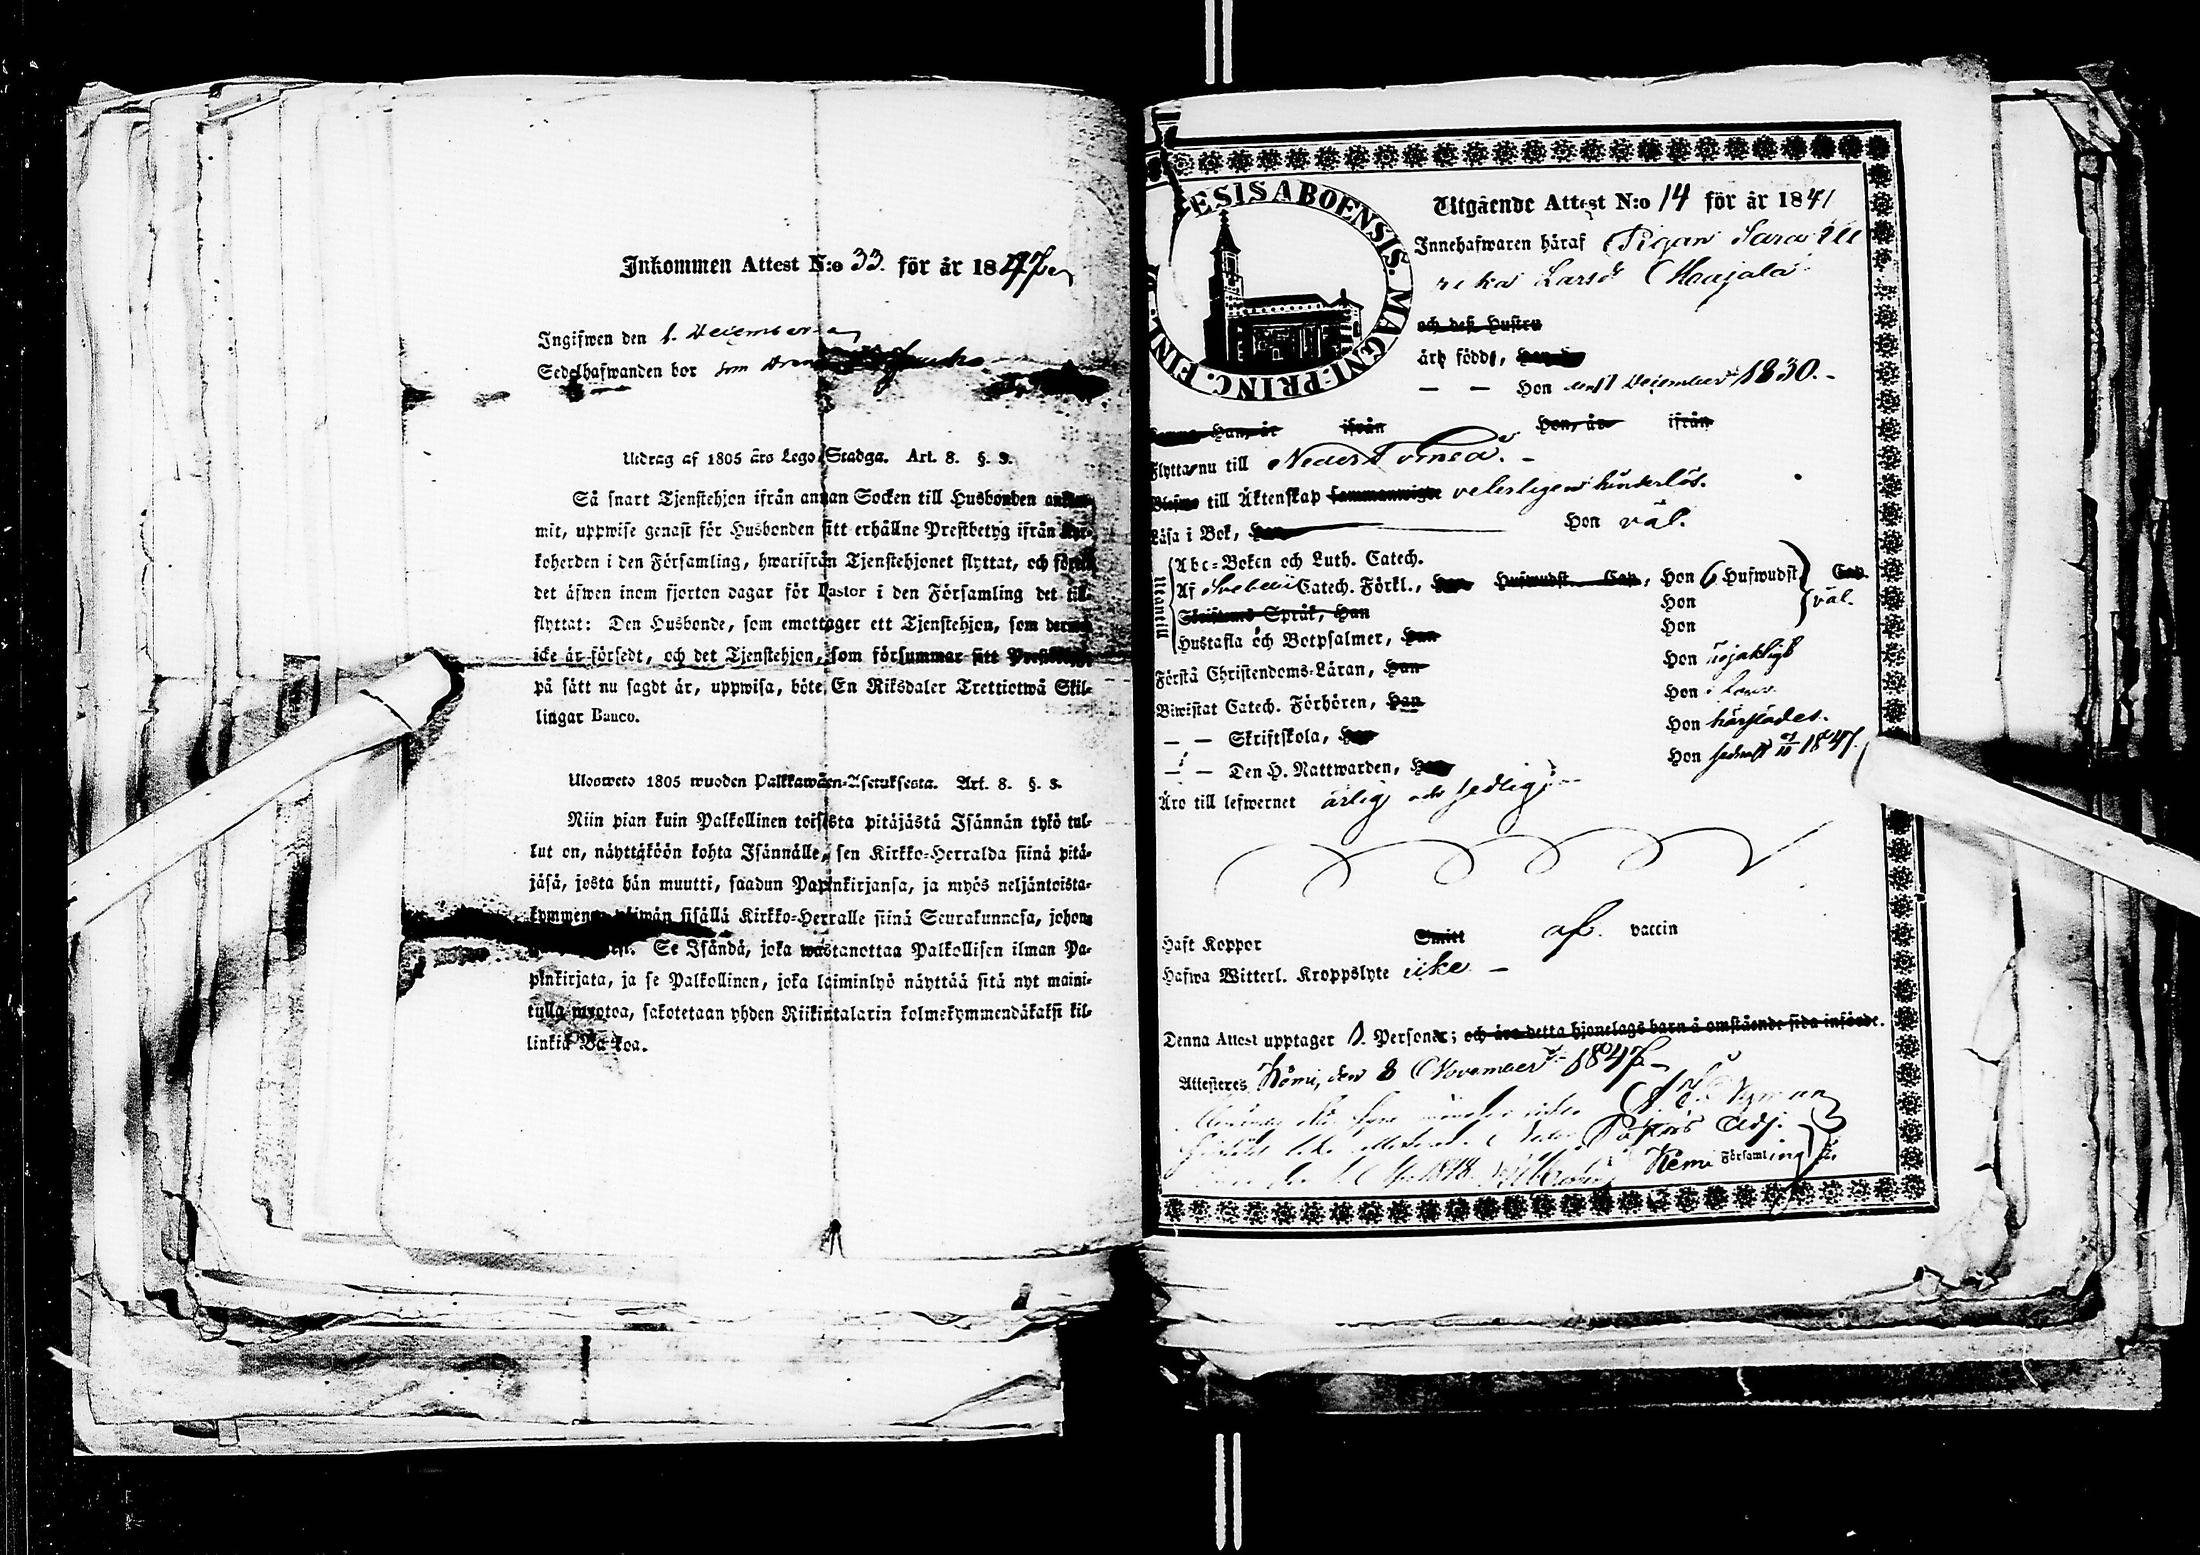 Inkommen Attest N:o 33. för år 1847
Ingifwen den 1. December
Sedelhafwanden bor som
Utdrag af 1805 års Lego-Stadga. Art. 8. §. 3.
Så snart Tjenstehjon ifrån annan Socken till Husbonden ankom-
mit, uppwise genast för Husbonden sitt erhållne Prestbetyg ifrån Kyr-
koherden i den Församling, hwarifrån Tjenstehjonet flyttat, och förete
det äfwen inom fjorton dagar för Pastor i den Församling det till-
flyttat: Den Husbonde, som emottager ett Tjenstehjon, som dermed
icke är försedt, och det Tjenstehjon, som försummar sitt Prestbetyg,
på sätt nu sagdt är, uppwisa, böte En Riksdaler Trettiotwå Skil-
lingar Banco.
Ulosweto 1805 wuoden Palkkawäen-Asetuksesta. Art. 8. §. 3.
Niin pian kuin Palkollinen toisesta pitäjästä Isännän tykö tul-
lut on, näyttäköön kohta Isännälle, sen Kirkko-Herralda siinä pitä-
jäsä, josta hän muutti, saadun Papinkirjansa, ja myös neljäntoista-
kymmenen päiwän sisällä Kirkko-Herralle siinä Seurakunnasa, johon
Se Isändä, joka wastanottaa Palkollisen ilman Pa-
pinkirjata, ja se Palkollinen, joka laiminlyö näyttää sitä nyt maini-
tulla muotoa, sakotetaan yhden Riikintalarin kolmekymmendäkaksi kil-
linkiä Bankoa.
ESIS ABOENSIS. MAGNI-PRINC. FINL
Utgående Attest N:o 14 för år 1847
Innehafwaren häraf Pigan Sara Ul
rika Larsd Maijala
och dess Hustru
är född, Han
— — Hon den 1 December 1830. -
Han, är ifrån Hon, är ifrån
Flyttar nu till Neder Torneå. -
till Äktenskap sammanwigde veterligen hinderlös.
Läsa i Bok, Han Hon väl.
Utantill
Abc-Boken och Luth. Catech.
Af Svebelii Catech. Förkl., Han Hufwudst. Cap, Hon 6 Hufwudst Cap.
Språk, Han Hon väl.
Hustafla och Botpsalmer, Han Hon
Förstå Christendoms-Läran, Han Hon
Biwistat Catech. Förhören, Han Hon
— — Skriftskola, Han Hon härstädes.
— — Den H. Nattwarden, Han Hon sednast 1847.
Äro till lefwernet ärlig och sedlig
Haft Koppor Smitt af. vaccin
Hafwa Witterl. Kroppslyte icke -
Denna Attest upptager 1. Personer; och äro detta hjonelags barn å omstående sida införde.
Attesteres Kemi, den 8 November 1847
Nyman
Past:s Adj.
Kemi Församling